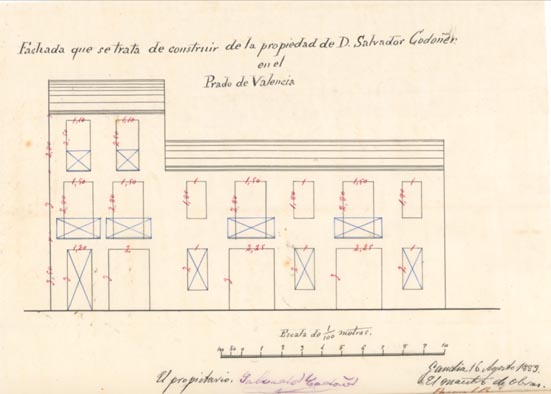 Fachada que se trata de construir de la propiedad de D. Salvador Codoñer
en el
Prado de Valencia
1,10 1,10
2,50 2,50
1,50 1,50 1 1,50 1 1,50 1
1,20 2 1 2,25 1 2,25 1
3 3 2 3 2 3 2
3,50
Escala de 1/100 metros.
10 50 0 1 2 3 4 5 6 7 8 9 10
Gandía 16 Agosto 1883.
El propietario. Salvador Codoñer
El maestro de Obras.